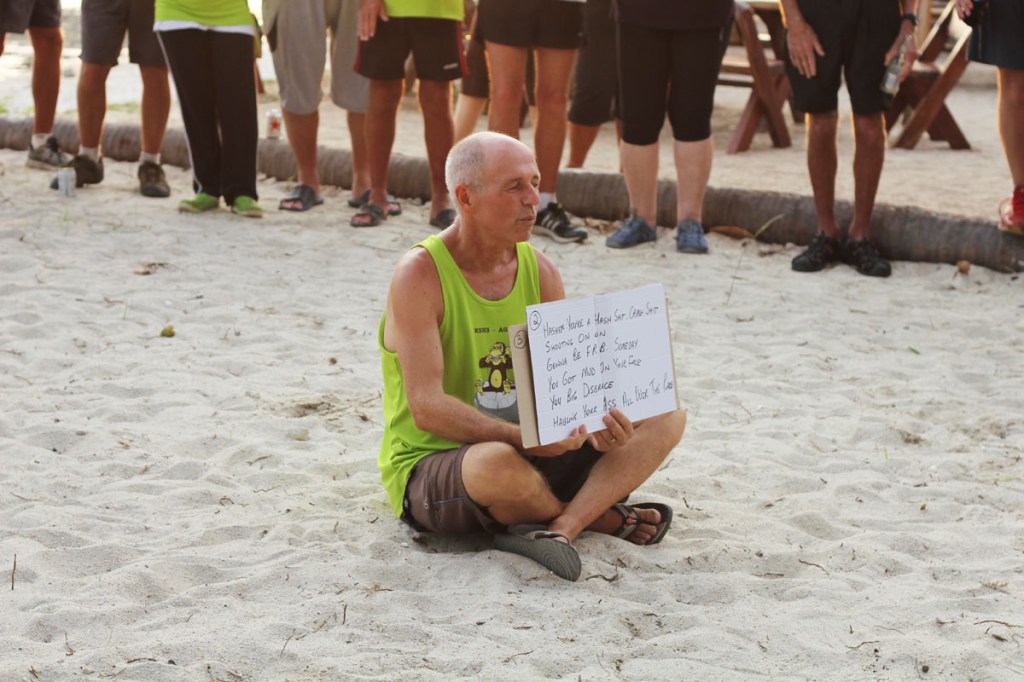 ②
HASHER YOU'RE A HASH SHIT. CRAP SHIT
SHOOTING ON ON
GONNA BE F.R.B. SOMEDAY
YOU GOT MUD ON YOUR FACE
YOU BIG DISGRACE
HAULING YOUR ASS ALL OVER THE
③